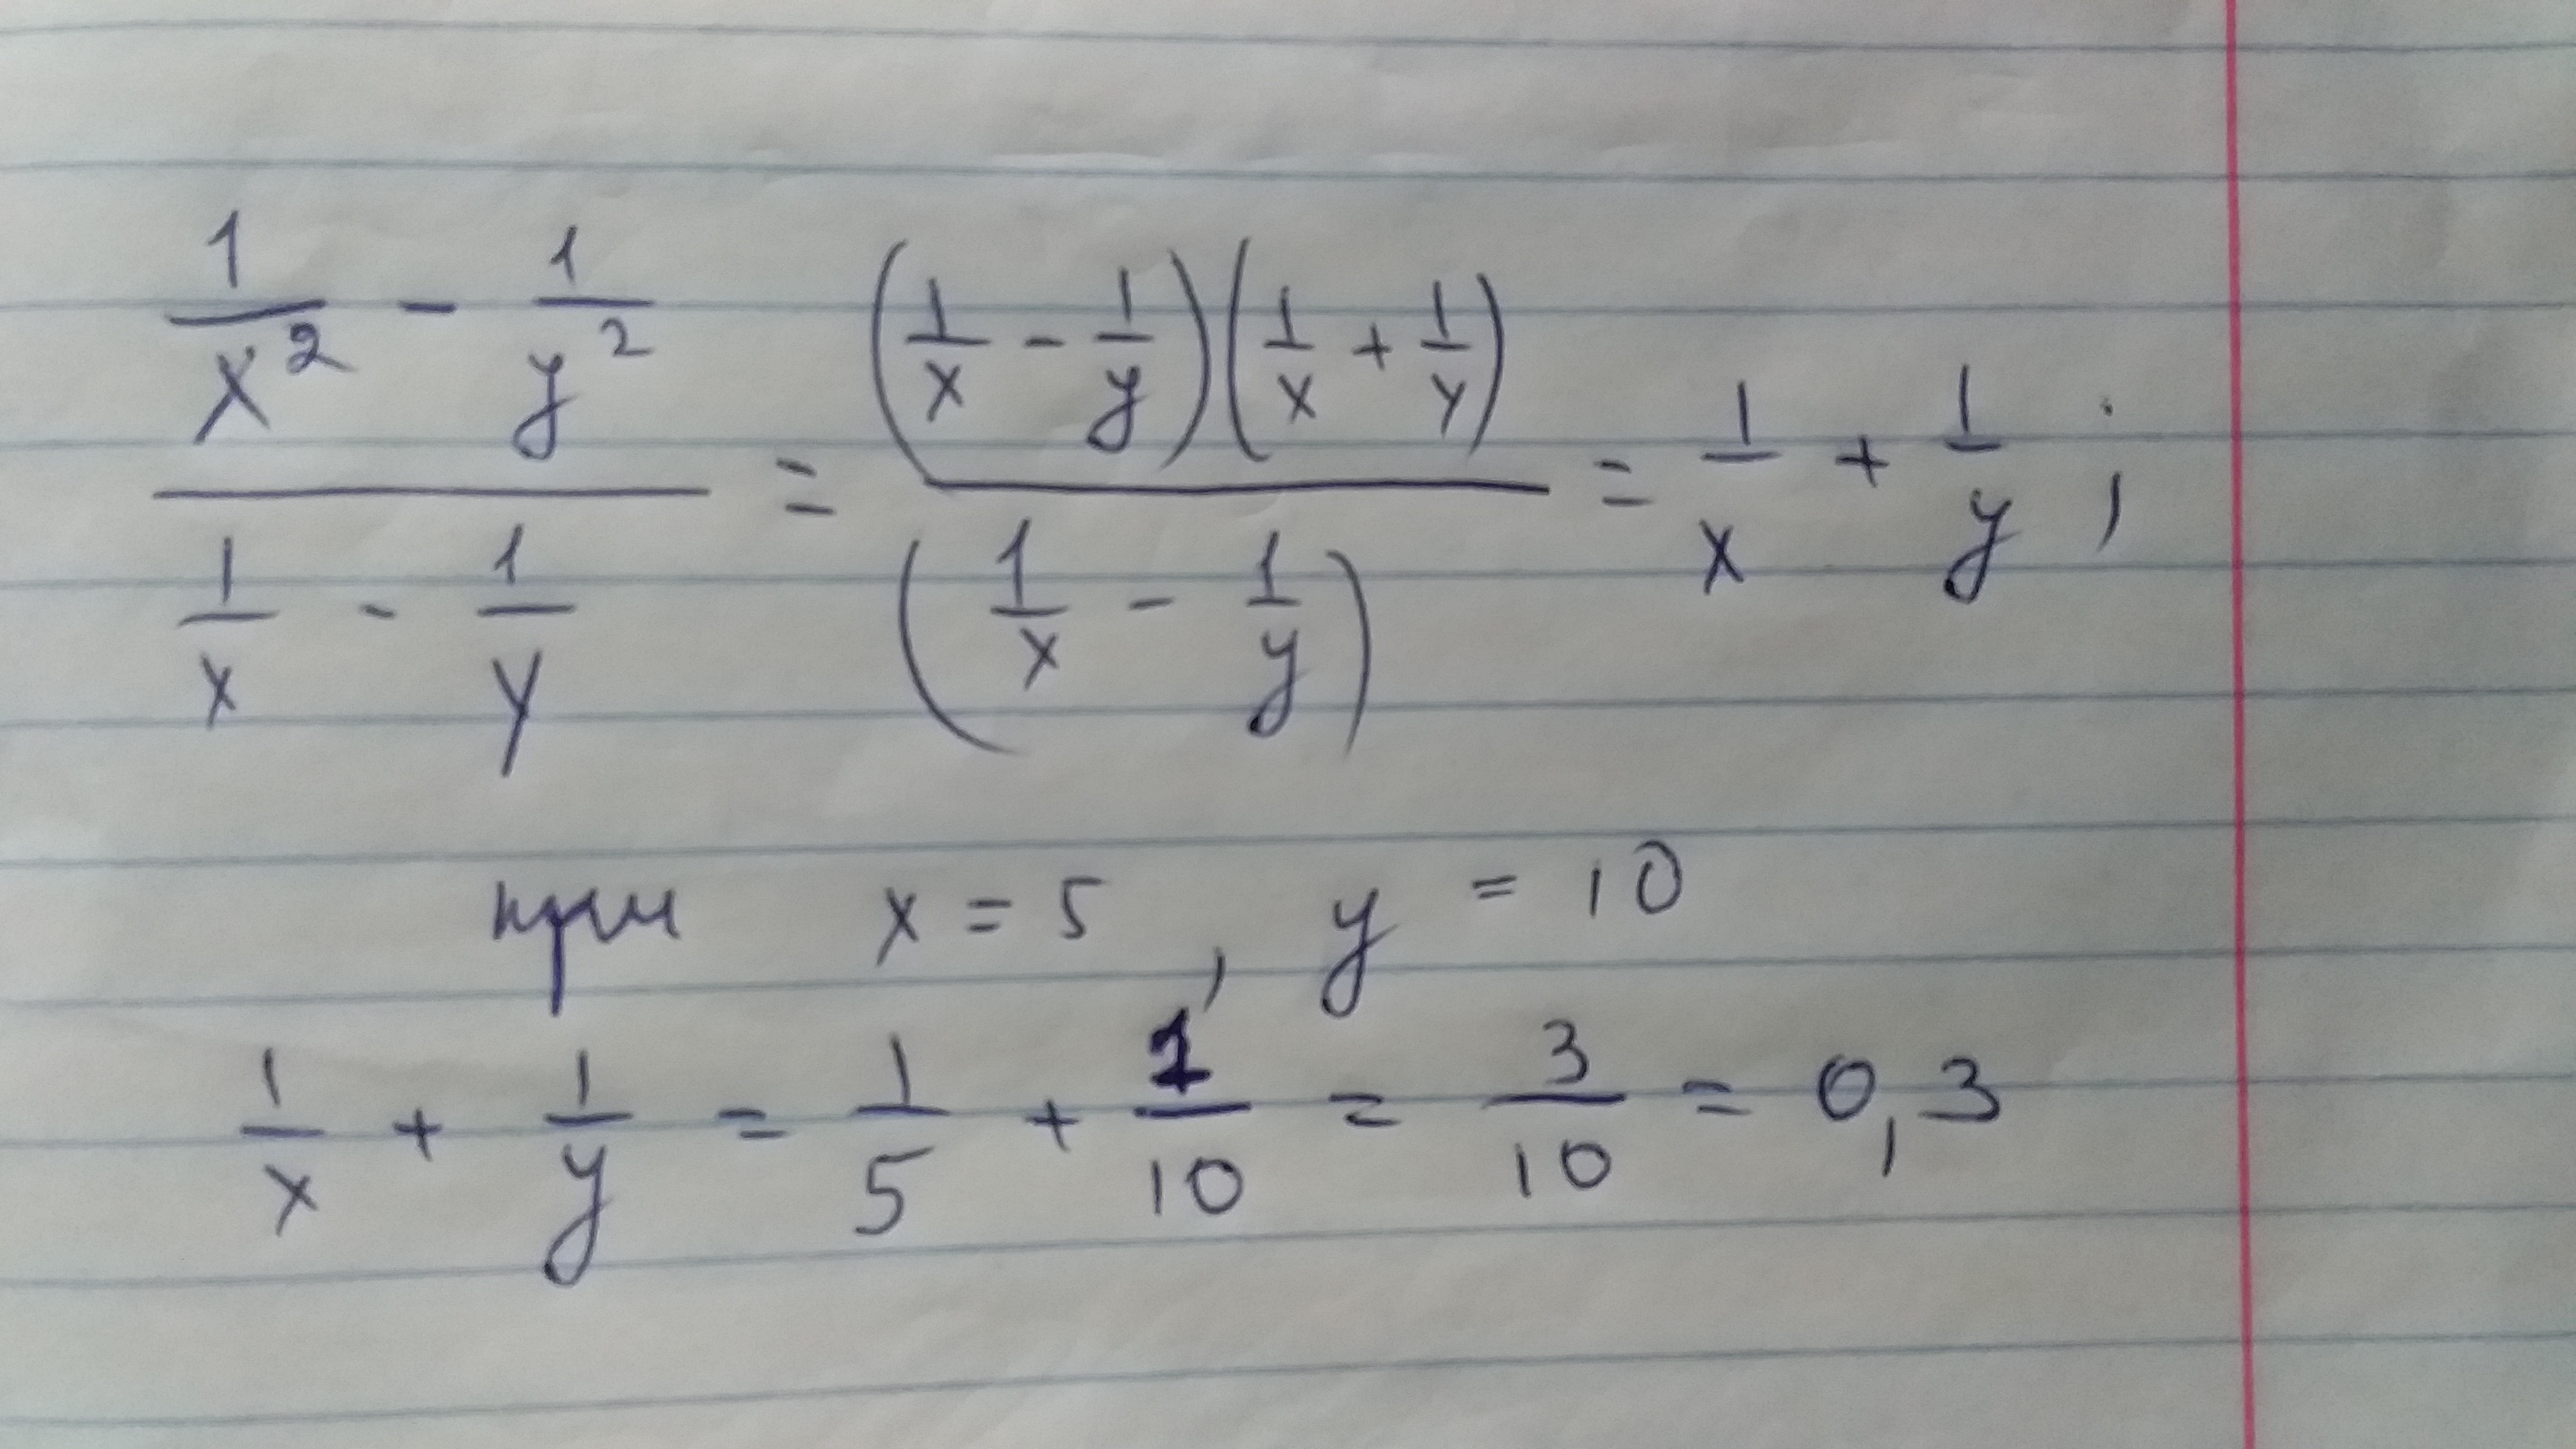 (1/x² - 1/y²)/(1/x - 1/y) = ((1/x - 1/y)(1/x + 1/y))/((1/x - 1/y)) = 1/x + 1/y ;
при x = 5 , y = 10
1/x + 1/y = 1/5 + 1/10 = 3/10 = 0,3